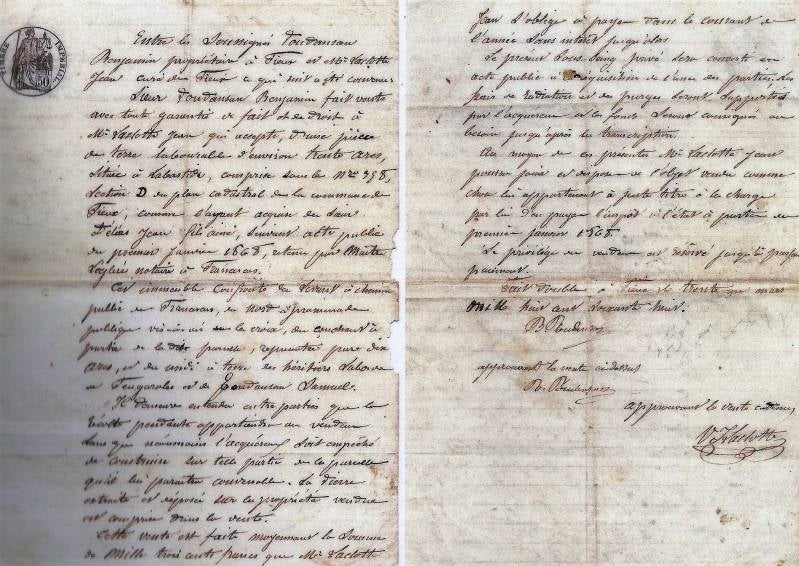 TIMBRE IMPERIAL
50
Entre les Soussignés Doudansan
Benjamin propriétaire à Fieux et Mr Laclotte
Jean curé de Fieux ce qui suit a été convenu
Sieur Doudansan Benjamin fait vente
avec tout garantie de fait et de droit à
Mr Laclotte Jean qui accepte, d'une pièce
de terre labourable d'environ trente ares,
Située à Labastide, comprise sous le Nro 358,
Section D du plan cadastral de la commune de
Fieux, comme l'ayant acquise du Sieur
Délias Jean fils ainé, suivant acte public
du premier Janvier 1868, retenu par Maitre
notaire à Francescas.
Cet immeuble Confronte du levant à chemin
public de Francescas, du nord à promenade
publique vicinal de la croix, du couchant à
partie de la dite parcelle, pour dix
ares, et du midi à terre des héritiers
de Feugarolles et de Doudansan Samuel.
Il demeure entendu entre parties que la
récolte pendante appartiendra au vendeur
Sans que néanmoins l'acquéreur Soit empêché
de construire sur telle partie de la parcelle
qu'il lui paraitra convenable. La pierre
extraite et déposée sur la propriété vendue
est comprise dans la vente.
Cette vente est faite moyennant la Somme
de Mille trois cents francs que Mr Laclotte
Jean S'oblige à payer dans le courant de
l'année Sans intérêt jusqu'alors
Le présent Sous Seing privé sera converti en
acte public à réquisition de l'une des parties, les
frais de radiation et de purge seront Supportés
par l'acquéreur et les fonds Seront consignés au
besoin jusqu'après la transcription.
Au moyen de ces présentes Mr Laclotte Jean
pourra jouir et disposer de l'objet vendu comme
chose lui appartenant à juste titre à la charge
par lui d'en payer l'impôt à l'état à partir du
premier janvier 1868.
Le privilège du vendeur est réservé jusqu'à parfait
paiement.
Fait double à Fieux le trente un mars
mil huit cent Soixante huit.
approuvant la vente ci dessus
approuvant la vente ci dessus
Laclotte